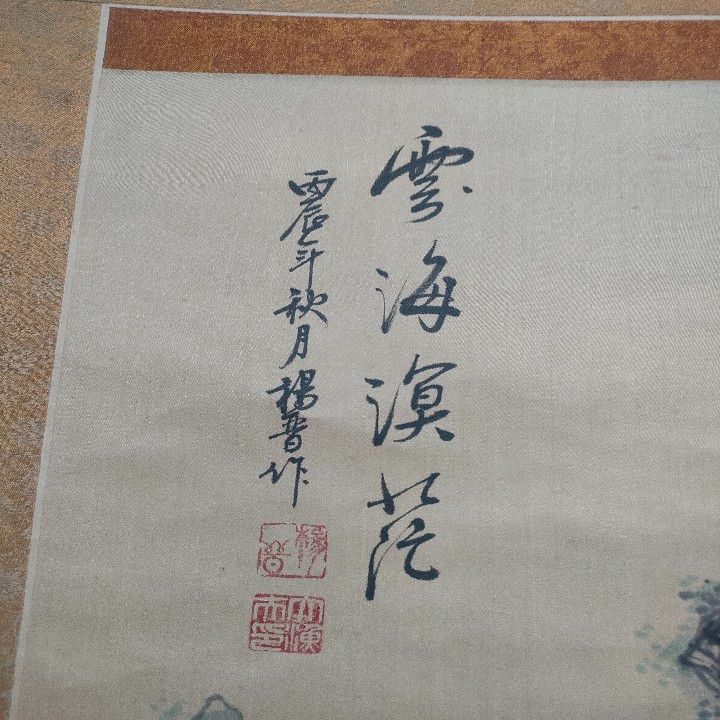 雲海溟茫
丙辰年秋月楊晋作
楊晋